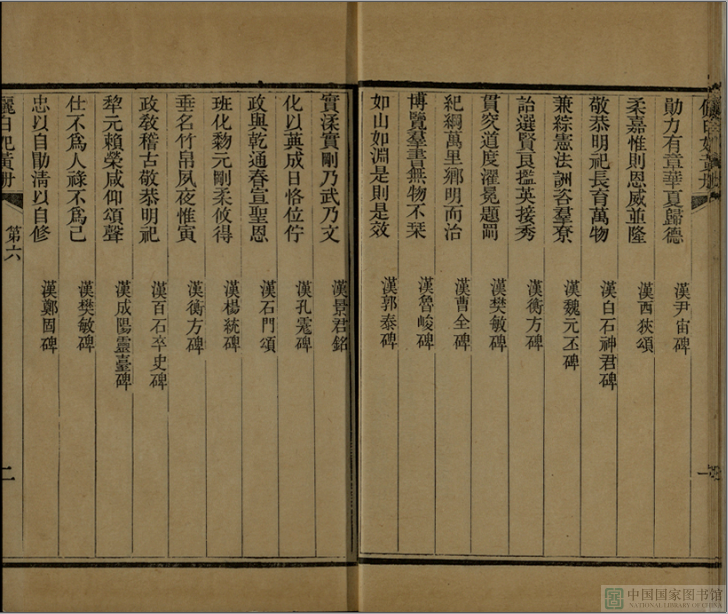 勛力有章華夏歸德　漢尹宙碑
柔嘉惟則恩威並隆　漢西狹頌
敬恭明祀長育萬物　漢白石神君碑
兼綜憲法詶咨羣寮　漢魏元丕碑
詒選賢良攬英接秀　漢衡方碑
貫究道度濯冕題剛　漢樊敏碑
紀綱萬里鄉明而治　漢曹全碑
博覽羣書無物不栞　漢魯峻碑
如山如淵是則是效　漢郭泰碑
實渘實剛乃武乃文　漢景君銘
化以英成日恪位佇　漢孔宙碑
政與乾通春宣聖恩　漢石門頌
班化黎元剛柔攸得　漢楊統碑
垂名竹帛夙夜惟寅　漢衡方碑
政敎稽古敬恭明祀　漢百石卒史碑
犂元賴榮咸仰頌聲　漢成陽靈臺碑
仕不爲人祿不爲己　漢樊敏碑
忠以自勛淸以自修　漢鄭固碑
儷白妃黃册
第六
一
二
中国国家图书馆
NATIONAL LIBRARY OF CHINA